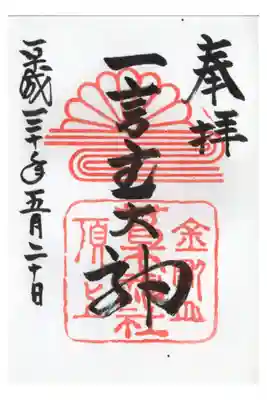 奉拝
一言主大神
平成三十年五月二十日
金剛山
葛木神社
頂上